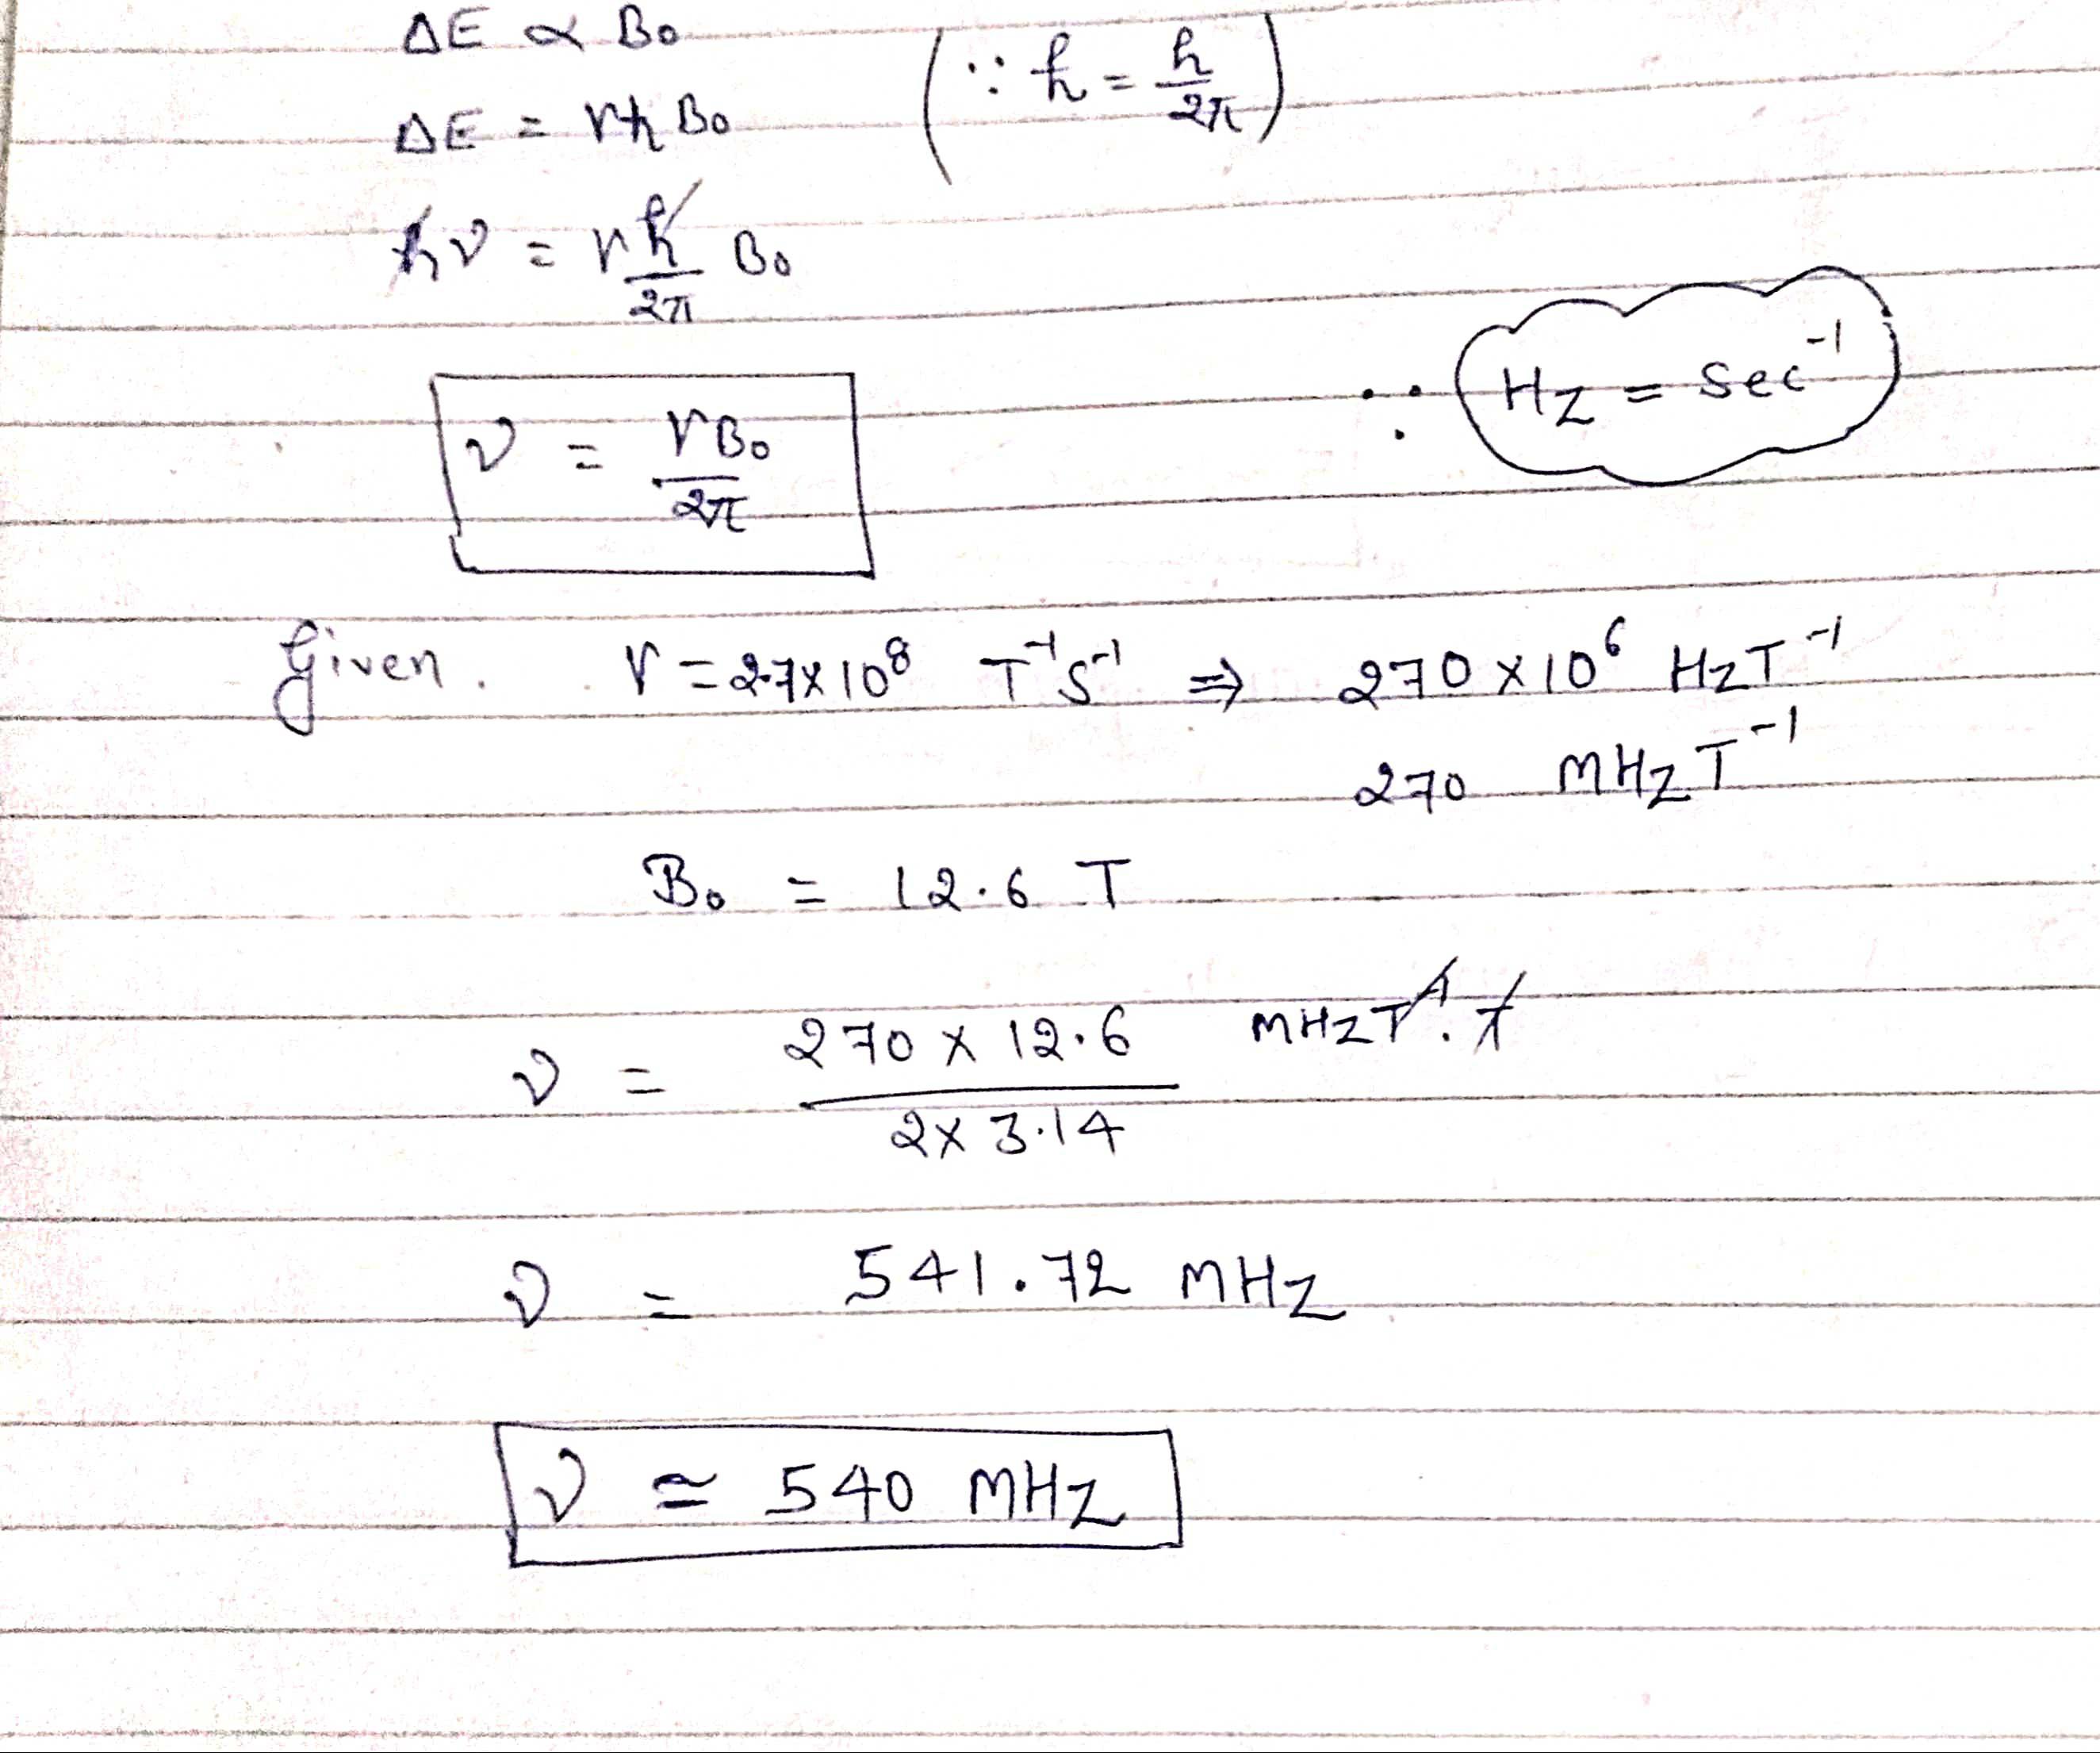 ΔE ∝ B₀
ΔE = γħ B₀ (∵ ħ = h/2π)
hν = γ h/2π B₀
ν = γB₀/2π
∵ Hz = sec⁻¹
Given. γ = 2.7×10⁸ T⁻¹S⁻¹ ⇒ 270 × 10⁶ HzT⁻¹
270 MHz T⁻¹
B₀ = 12.6 T
ν = 270 × 12.6 / 2× 3.14 MHzT⁻¹.T
ν = 541.72 MHz
ν ≃ 540 MHz